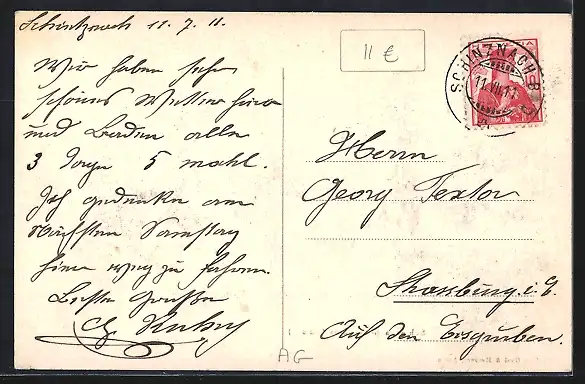 Schintznach 11.7.11.
Wir haben sehr
schönes Wetter hier
und Baden alle
3 Tage 5 mahl.
Ich gedenke am
Nächsten Samstag
hier weg zu fahren.
Beste Grüsse
11 €
SCHINZNACH-BAD
11.VII.11
Herrn
Georg Textor
Strassburg i. E.
Auf den Eisgruben.
AG